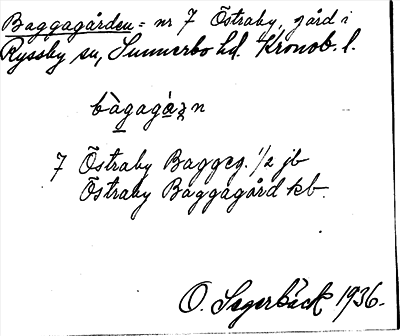 Baggagården = nr 7 Östraby, gård i
Ryssby sn, Sunnerbo hd. Kronob. l.
bàgagàṇ
7 Östraby Baggeg. 1/2 jb
Östraby Baggagård kb.
O. Segerbäck 1936.